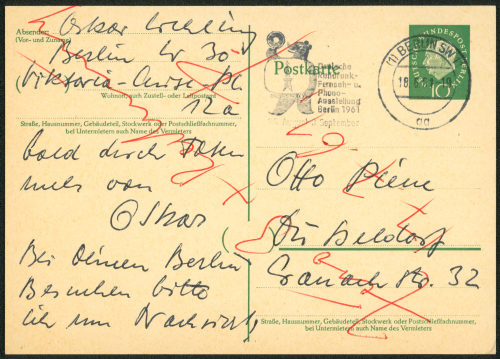 Absender:
(Vor- und Zuname)
Oskar
Berlin W 30
Viktoria-Luise-Pl.
Wohnort, auch Zustell- oder Leitpostamt
12a
Straße, Hausnummer, Gebäudeteil, Stockwerk oder Postschließfachnummer,
bei Untermietern auch Name des Vermieters
bald durch
von
Oskar
Bei Deinem Berlin
Besuchen bitte
ich um Nachricht,
Postkarte
Deutsche
Rundfunk-
Fernseh- u.
Phono-
Ausstellung
Berlin 1961
September
(1) BERLIN SW
DEUTSCHE BUNDESPOST BERLIN
10
Otto Piene
Düsseldorf
Str. 32
Straße, Hausnummer, Gebäudeteil, Stockwerk oder Postschließfachnummer
bei Untermietern auch Name des Vermieters